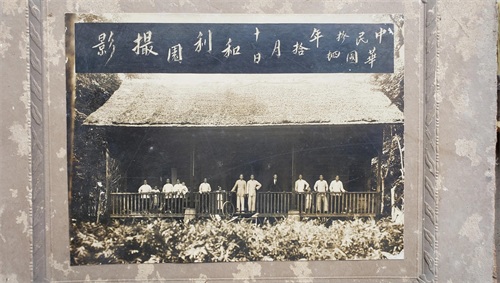 中華民國拾四年拾月十日和利園撮影